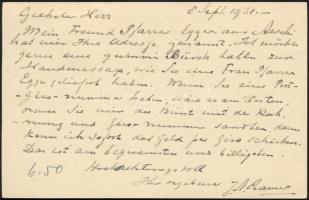 Geehrter Herr 8 Sept. 1931.-
Mein Freund Pfarrer Egger aus Aeschi
hat mir Ihre Adresse genannt. Ich möchte
gerne eine gummi Bürste haben zur
Handmassage, wie Sie eine Frau Pfarrer
Egger geliefert haben. Wenn Sie eine Post-
Giro-nummer haben, wäre es am besten,
wenn Sie mir die Bürste mit der Rech-
nung und Giro-nummer sandten, dann
kann ich sofort das Geld per Giro schicken.
Das ist am bequemsten und billigsten.
6.50 Hochachtungsvoll
Ihr ergebener J.A.